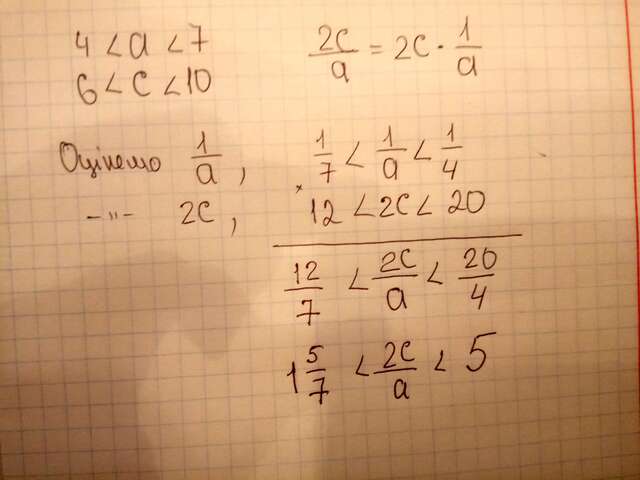 4 < a < 7
6 < c < 10
2c/a = 2c · 1/a
Оцінемо 1/a, 1/7 < 1/a < 1/4
-"- 2c, × 12 < 2c < 20
12/7 < 2c/a < 20/4
1 5/7 < 2c/a < 5